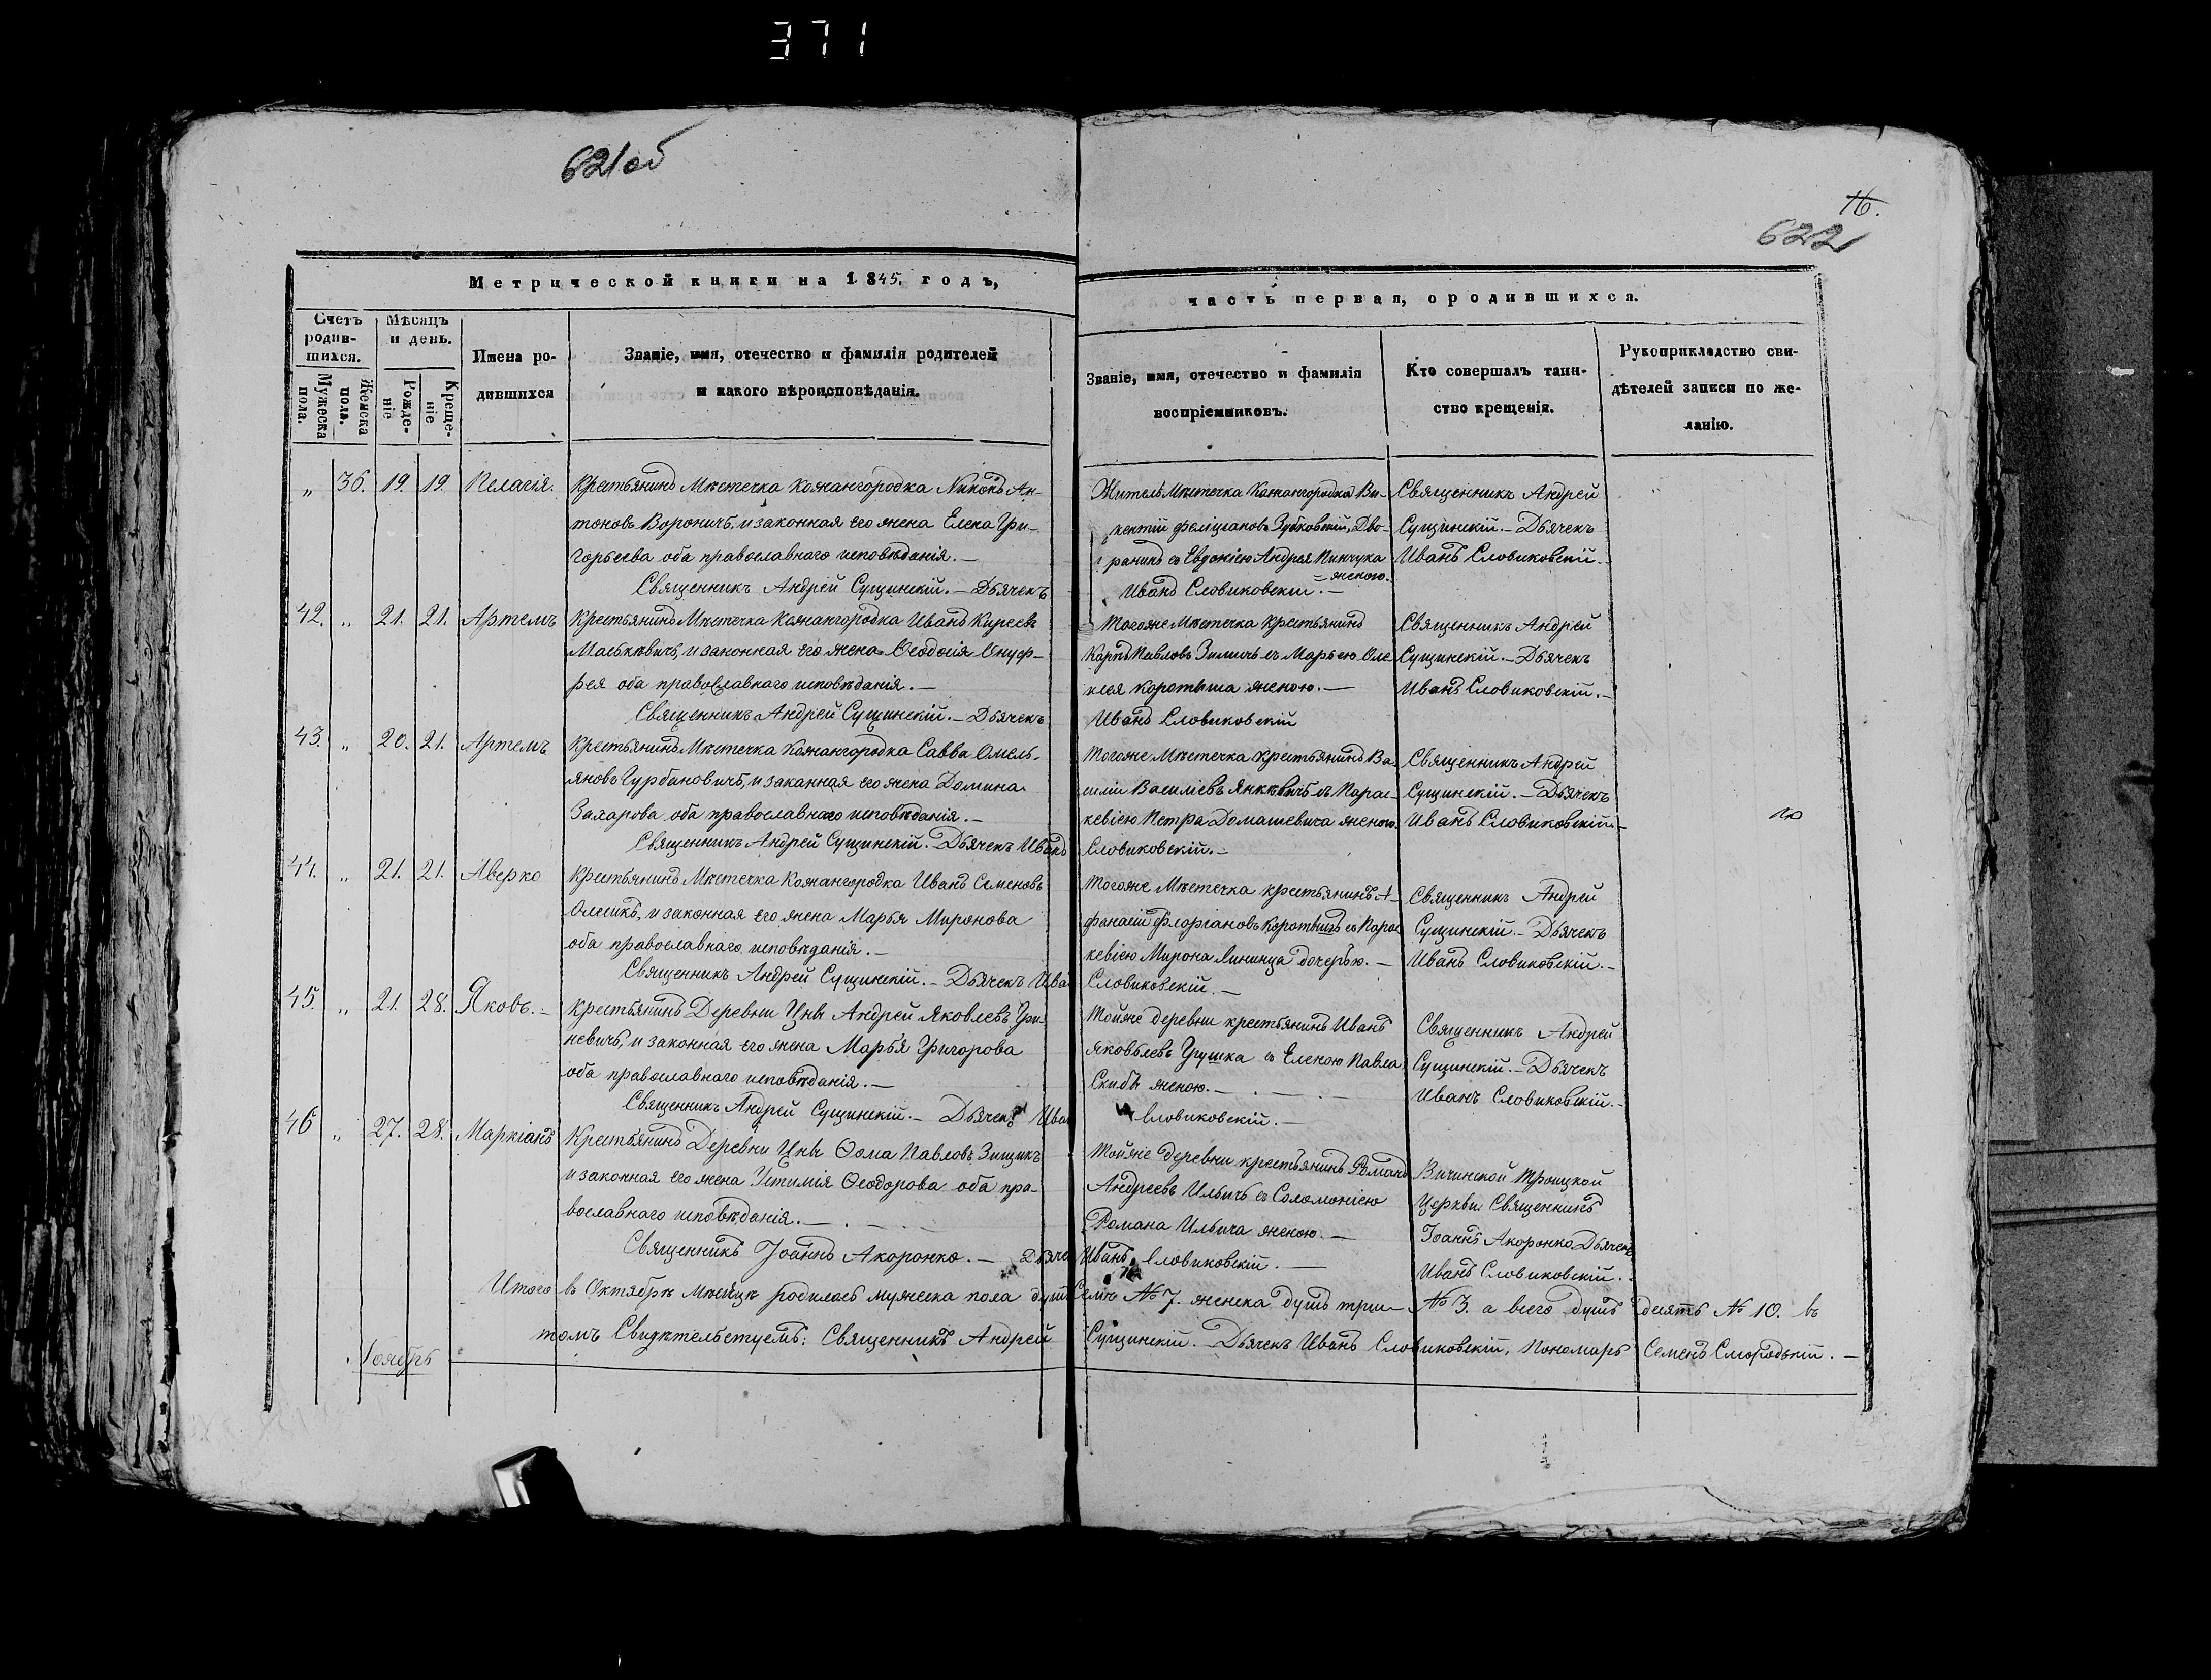 371
621об
16.
622
Метрической книги на 1845. годъ,
часть первая, ородившихся.
Счетъ родив-шихся.
Мужеска пола.
Женска пола.
Мѣсяцъ и день.
Рожде-ніе
Креще-ніе
Имена ро-
дившихся
Званіе, имя, отечество и фамилія родителей
и какого вѣроисповѣданія.
Званіе, имя, отечество и фамилія
воспріемниковъ.
Кто совершалъ таин-
ство крещенія.
Рукоприкладство сви-
дѣтелей записи по же-
ланію.
„ 36. 19. 19. Пелагія.
Крестьянинъ Мѣстечка Кожангородка Никонъ Ан-
тоновъ Вороничъ, и законная его жена Елена Гри-
горьева оба православнаго исповѣданія.—
Священникъ Андрей Сущинскій.— Дьячекъ
Житель Мѣстечка Кожангородка Ви-
кентій Феліціановъ Зубковскій, Дво-
ранинъ съ Евдокіею Андрея Пинчука
женою.
Иванъ Словиковскій.—
Священникъ Андрей
Сущинскій.— Дьячекъ
Иванъ Словиковскій.
42. „ 21. 21. Артемъ
Крестьянинъ Мѣстечка Кожангородка Иванъ Киреевъ
Малькѣвичъ, и законная его жена Ѳеодосія Онуф-
рея оба православнаго исповѣданія.—
Священникъ Андрей Сущинскій.— Дьячекъ
Тогоже Мѣстечка Крестьянинъ
Карпъ Павловъ Зиличъ съ Марьею Оле-
ксея Коротыша женою.—
Иванъ Словиковскій
Священникъ Андрей
Сущинскій.— Дьячекъ
Иванъ Словиковскій.—
43. „ 20. 21. Артемъ
Крестьянинъ Мѣстечка Кожангородка Савва Омель-
яновъ Гурбановичъ, и заканная его жена Домина
Захарова оба православнаго исповѣданія.—
Священникъ Андрей Сущинскій. Дьячекъ Иванъ
Тогоже Мѣстечка крестьянинъ Ва-
силій Василіевъ Янкѣвичъ съ Парас-
кевіею Петра Домашевича женою.
Словиковскій.—
Священникъ Андрей
Сущинскій.— Дьячекъ
Иванъ Словиковскій.—
44. „ 21. 21. Аверко
Крестьянинъ Мѣстечка Кожангородка Иванъ Семеновъ
Олешикъ, и законная его жена Марья Миронова
оба православнаго исповѣданія.—
Священникъ Андрей Сущинскій.— Дьячекъ Ива
Тогоже Мѣстечка крестьянинъ А-
фанасій Флоріановъ Коротышъ съ Парас
кевіею Мирона Лининца дочерью.—
Словиковскій.—
Священникъ Андрей
Сущинскій.— Дьячекъ
Иванъ Словиковскій.—
45. „ 21. 28. Яковъ.—
Крестьянинъ Деревни Цны Андрей Яковлевъ Гри-
невичъ, и законная его жена Марья Григорова
оба православнаго исповѣданія.—
Священникъ Андрей Сущинскій.— Дьячекъ Иван
Тойже деревни крестьянинъ Иванъ
Яковьлевъ Грушка съ Еленою Павла
Скибы женою.—
Словиковскій.—
Священникъ Андрей
Сущинскій.— Дьячекъ
Иванъ Словиковскій.—
46 „ 27. 28. Маркіанъ
Крестьянинъ Деревни Цны Ѳома Павловъ Зищикъ
и законная его жена Устимія Ѳеодорова оба пра-
вославнаго исповѣданія.—
Священникъ Іоаннъ Акоронко.— Дьяче
Тойже деревни крестьянинъ Романъ
Андреевъ Ильичъ съ Соломоніею
Романа Ильича женою.—
Иванъ Словиковскій.—
Вичинской Троицкой
Церкви Священникъ
Іоаннъ Акоронко, Дьячекъ
Иванъ Словиковскій.
Итого въ Октябрѣ Мѣсяцѣ родилось мужеска пола душъ Семъ № 7. женска душъ три— № 3. а всего душъ десять № 10. въ
томъ Свидѣтельстуемъ: Священникъ Андрей Сущинскій.— Дьячекъ Иванъ Словиковскій, Пономарь Семенъ Смородскій.—
Ноябрь